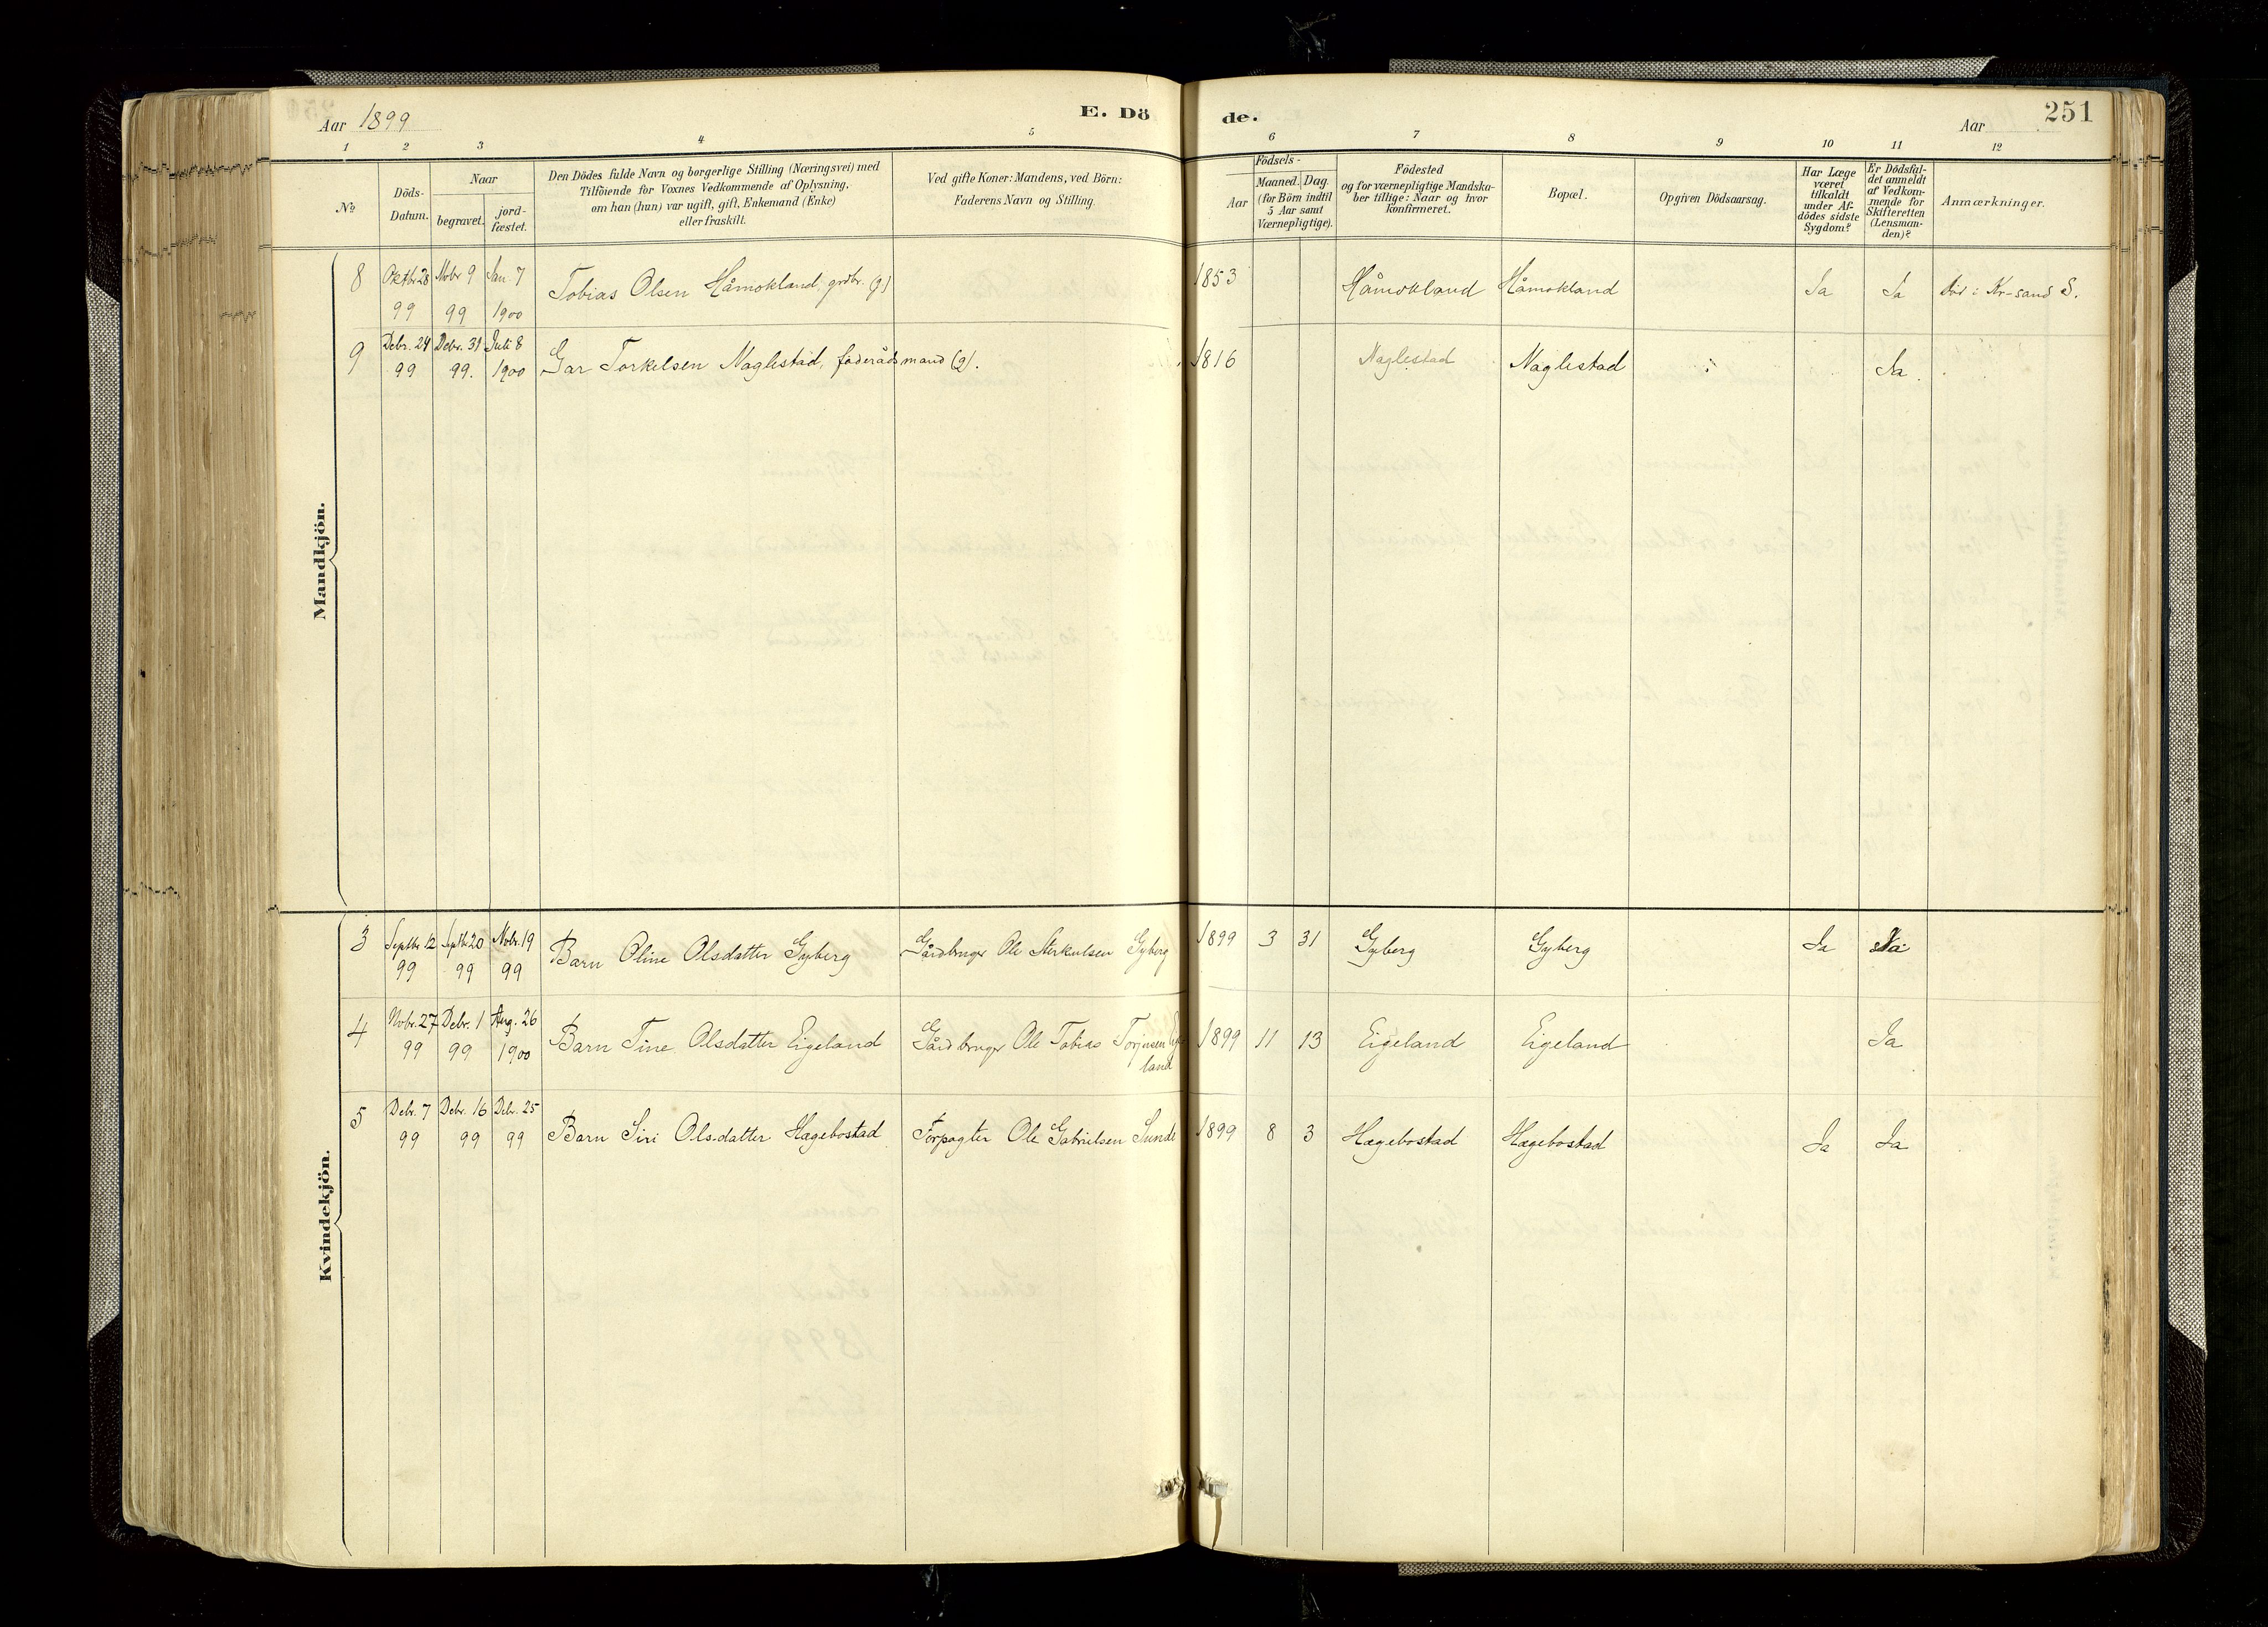 Aar 1899
E. Dö
de.
Aar
251
1 2 3 4 5 6 7 8 9 10 11 12
№
Döds-
Datum.
Naar
begravet.
jord-
fæstet.
Den Dödes fulde Navn og borgerlige Stilling (Næringsvei) med
Tilföiende for Voxnes Vedkommende af Oplysning,
om han (hun) var ugift, gift, Enkemand (Enke)
eller fraskilt.
Ved gifte Koner: Mandens, ved Börn:
Faderens Navn og Stilling.
Födsels-
Aar
Maaned. Dag.
(for Börn indtil
5 Aar samt
Værnepligtige).
Födested
og for værnepligtige Mandska-
ber tillige: Naar og hvor
konfirmeret.
Bopæl.
Opgiven Dödsaarsag.
Har Læge
været
tilkaldt
under Af-
dödes sidste
Sygdom?
Er Dödsfal-
det anmeldt
af Vedkom-
mende for
Skifteretten
(Lensman-
den)?
Anmærkninger.
Mandkjön.
8 Oktbr 28 99 Nobr 9 99 Jan. 7 1900 Tobias Olsen Håmokland, grdbr. (g.) 1853 Håmokland Håmokland Ja Ja Död i Kr-sand S.
9 Debr. 24 99 Debr. 31 99. Juli 8 1900 Gar Torkelsen Naglestad, føderådsmand (g). 1816 Naglestad Naglestad Ja.
Kvindekjön.
3 Septbr. 12 99 Septbr 20 99 Nobr. 19 99 Barn Oline Olsdatter Gyberg Gårdbruger Ole Sterkulsen Gyberg 1899 3 31 Gyberg Gyberg Ja Ja
4 Nobr. 27 99 Debr. 1 99 Aug. 26 1900 Barn Tine Olsdatter Eigeland Gårdbruger Ole Tobias Torjusen Eige
land 1899 11 13 Eigeland Eigeland Ja
5 Debr. 7 99 Debr. 16 99 Debr. 25 99 Barn Siri Olsdatter Hægebostad Forpagter Ole Gabrielsen Sunde 1899 8 3 Hægebostad Hægebostad Ja Ja